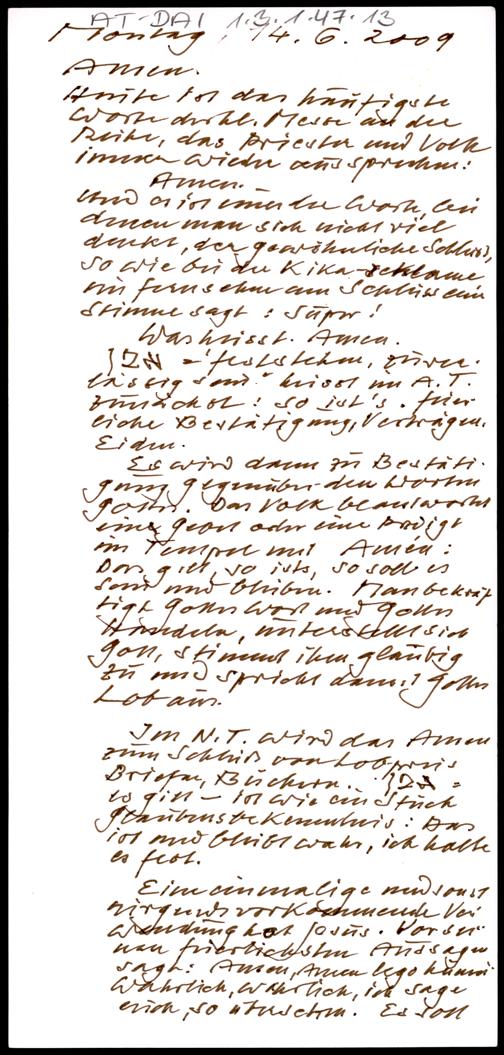 AT-DAI 1.3.1.47.13
Montag, 14.6.2009
Amen.
Heute ist das häufigste
Wort der hl. Messe an der
Reihe, das Priester und Volk
immer wieder aussprechen:
Amen.
Und es ist eines der Worte, bei
denen man sich nicht viel
denkt, der gewöhnliche Schluss,
so wie bei der Kika-
im Fernsehen am Schluss eine
Stimme sagt: Super!
Was heisst Amen.
אמן = "feststehen, zuver-
lässig sein" heisst im A.T.
zunächst: so ist's. Feier-
liche Bestätigung, Verträgen,
Eiden.
Es wird dann zu Bestäti-
gung gegenüber den Worten
Gottes. Das Volk beantwortet
ein Gebet oder eine Predigt
im Tempel mit Amen:
Das gilt, so ists, so soll es
sein und bleiben. Man bekräf-
tigt Gottes Wort und Gottes
Handeln, unterstellt sich
Gott, stimmt ihm gläubig
zu und spricht damit Gottes
Lob aus.
Im N.T. wird das Amen
zum Schluss von Lobpreis
Briefen, Büchern.. אמן =
es gilt – ist wie ein Stück
Glaubensbekenntnis: Das
ist und bleibt wahr, ich halte
es fest.
Eine einmalige und sonst
nirgends vorkommende Ver-
wendung hat Jesus. Vor sei-
nen feierlichsten Aussagen
sagt: Amen, Amen lego hümin
Wahrlich, wahrlich, ich sage
euch, so übersetzen. Es soll